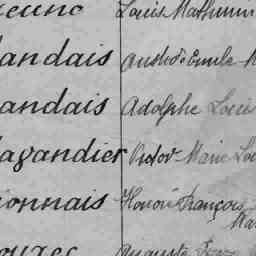 Louis Mathurin
andais Emile
andais Adolphe Louis
avandier Victor Marie Lou
ionnais Honoré François
Ma
Auguste